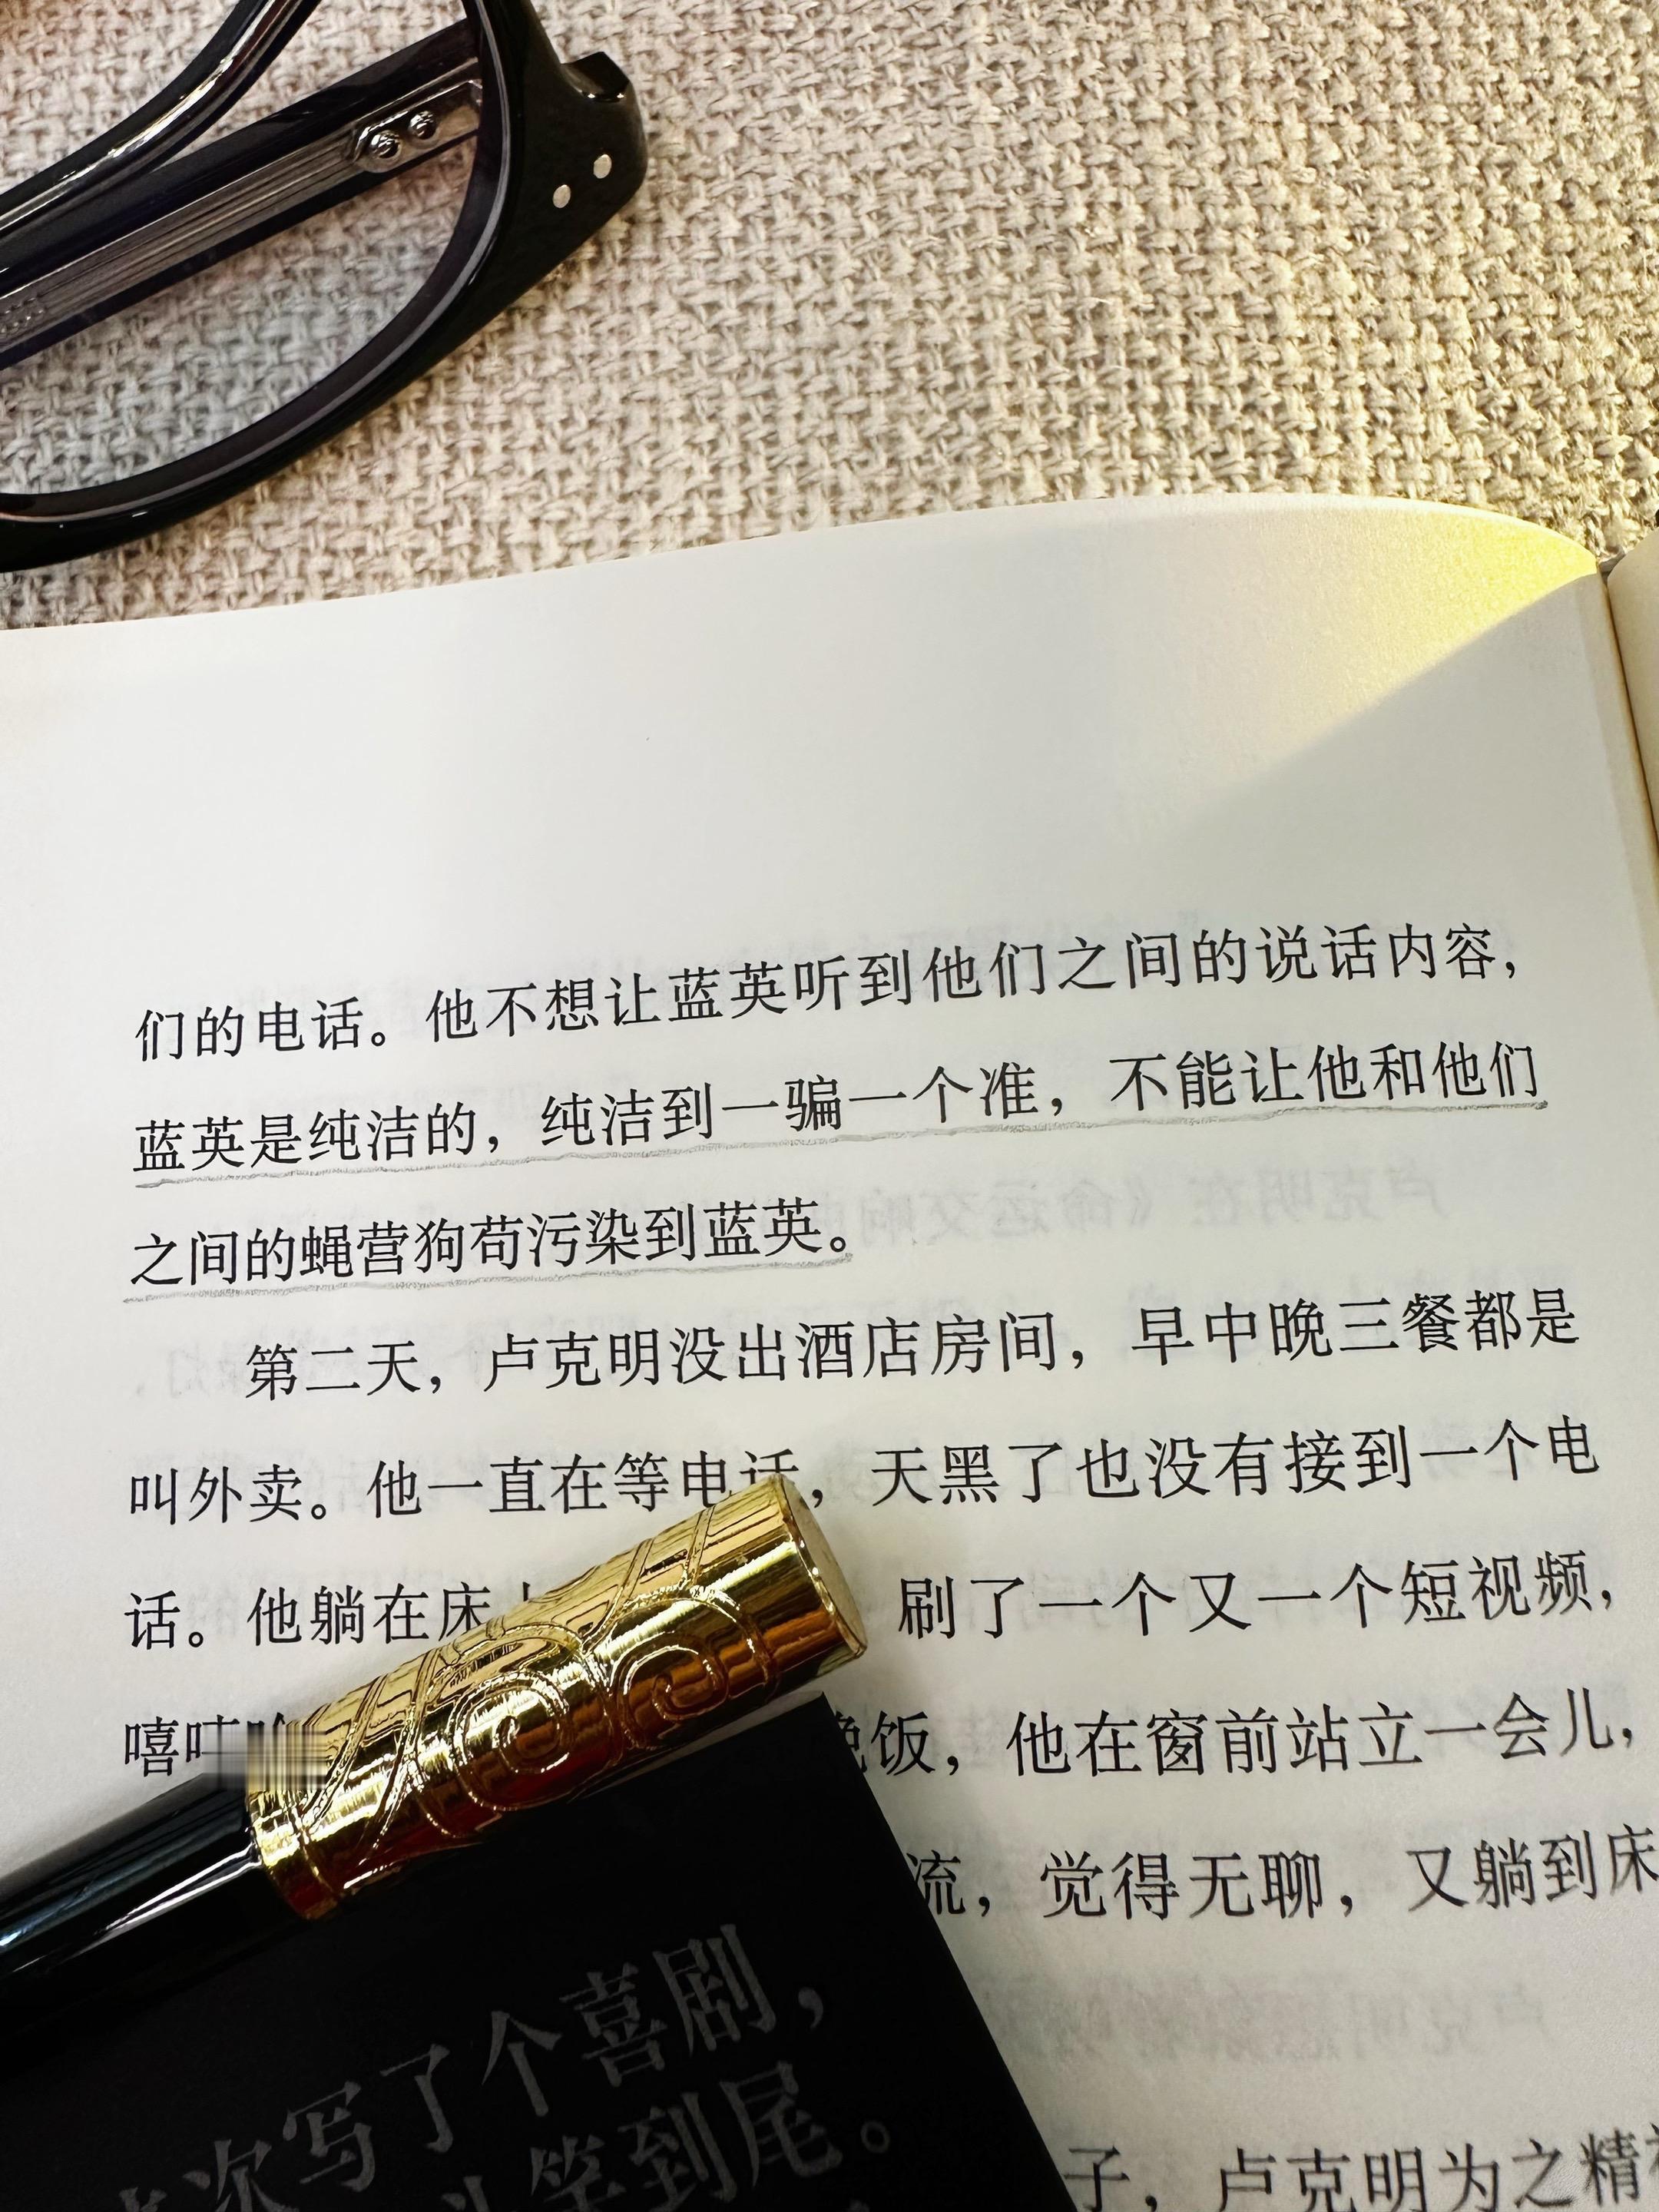 们的电话。他不想让蓝英听到他们之间的说话内容，
蓝英是纯洁的，纯洁到一骗一个准，不能让他和他们
之间的蝇营狗苟污染到蓝英。
第二天，卢克明没出酒店房间，早中晚三餐都是
叫外卖。他一直在等电话，天黑了也没有接到一个电
话。他躺在床 刷了一个又一个短视频，
嘻 饭，他在窗前站立一会儿，
流，觉得无聊，又躺到床
子，卢克明为之精
次写了个喜剧，
笑到尾。